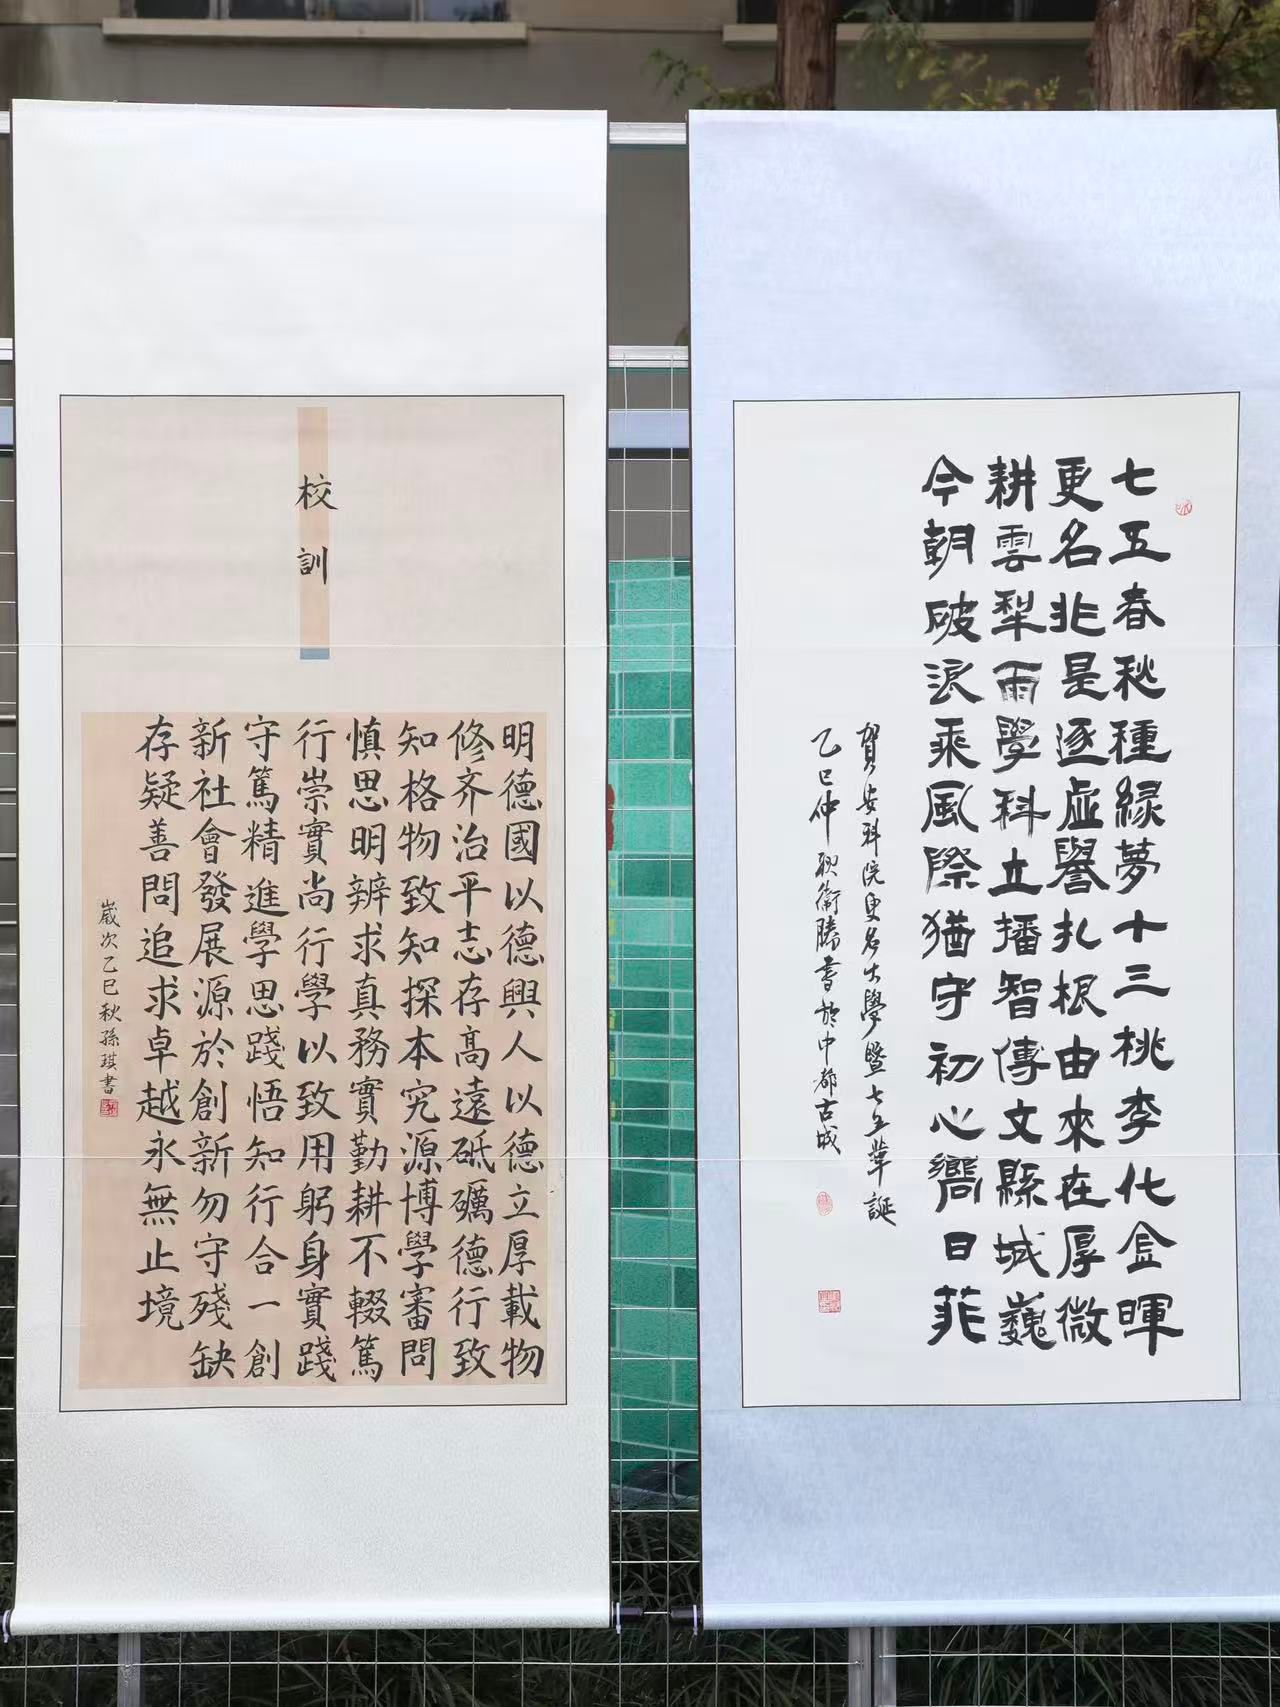 校訓
明德國以德興人以德立厚載物
修齐治平志存高遠砥礪德行致
知格物致知探本究源博學審問
慎思明辨求真務實勤耕不輟篤
行崇實尚行學以致用躬身實踐
守篤精進學思踐悟知行合一創
新社會發展源於創新勿守殘缺
存疑善問追求卓越永無止境
歲次乙巳秋孫琪書
七五春秋種緑夢十三桃李化金暉
更名非是逐虛譽扎根由來在厚微
耕雲犁雨學科立播智傳文縣城巍
今朝破浪乘風際猶守初心嚮日菲
賀安科院更名大學暨七五華誕
乙巳仲秋衛勝書於中都古城